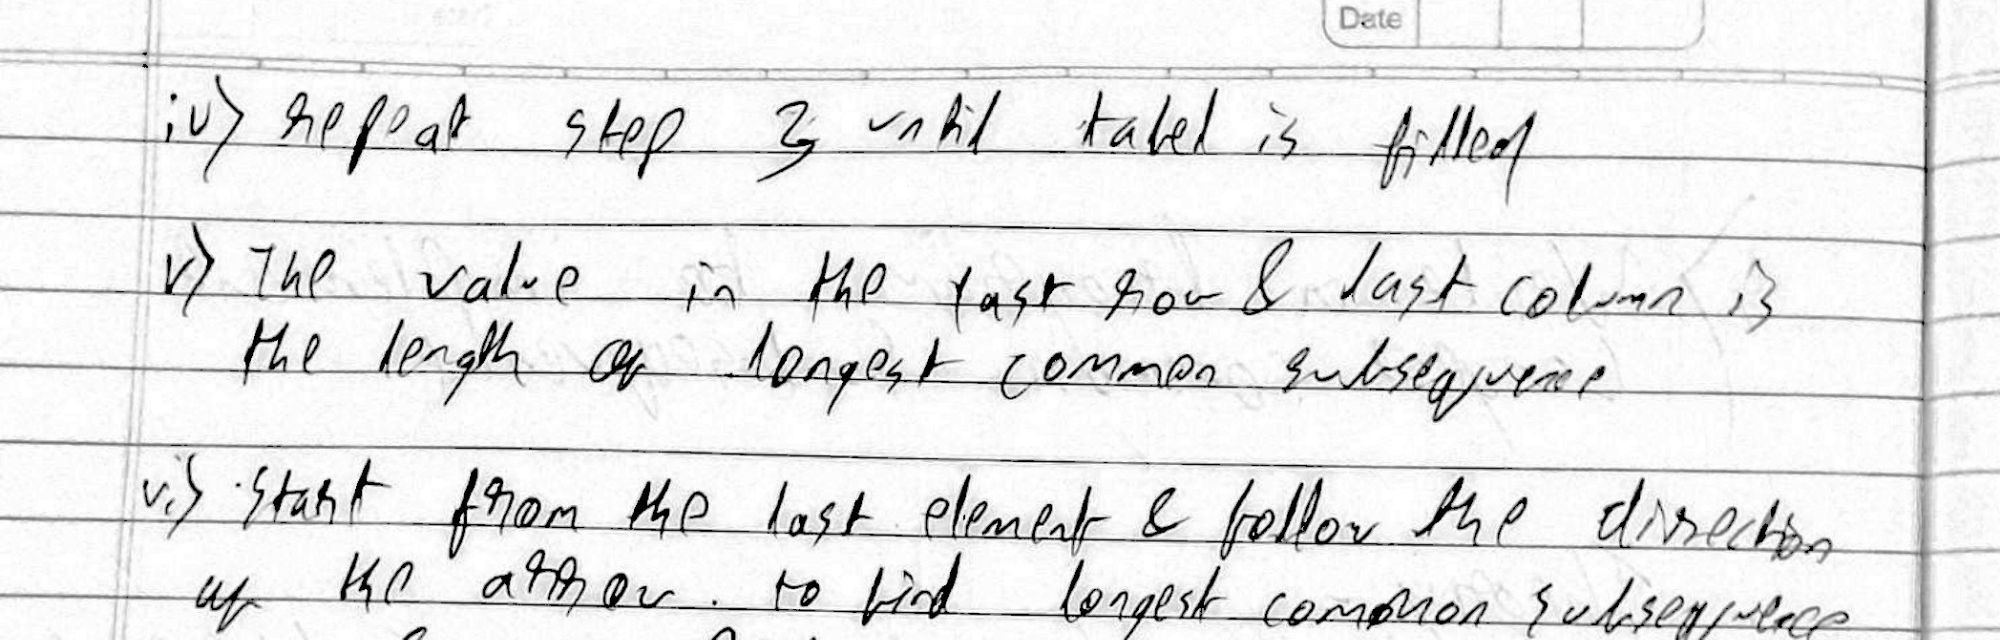 Date
iv) repeat step 3 until tabel is filled
v) The value in the last row & last column is
the length of longest common subsequence
vi) start from the last element & follow the direction
of the arrow. to find longest common subsequence